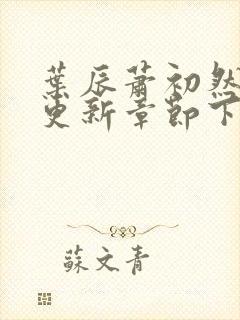 葉辰蕭初然
更新章節下
蘇文青